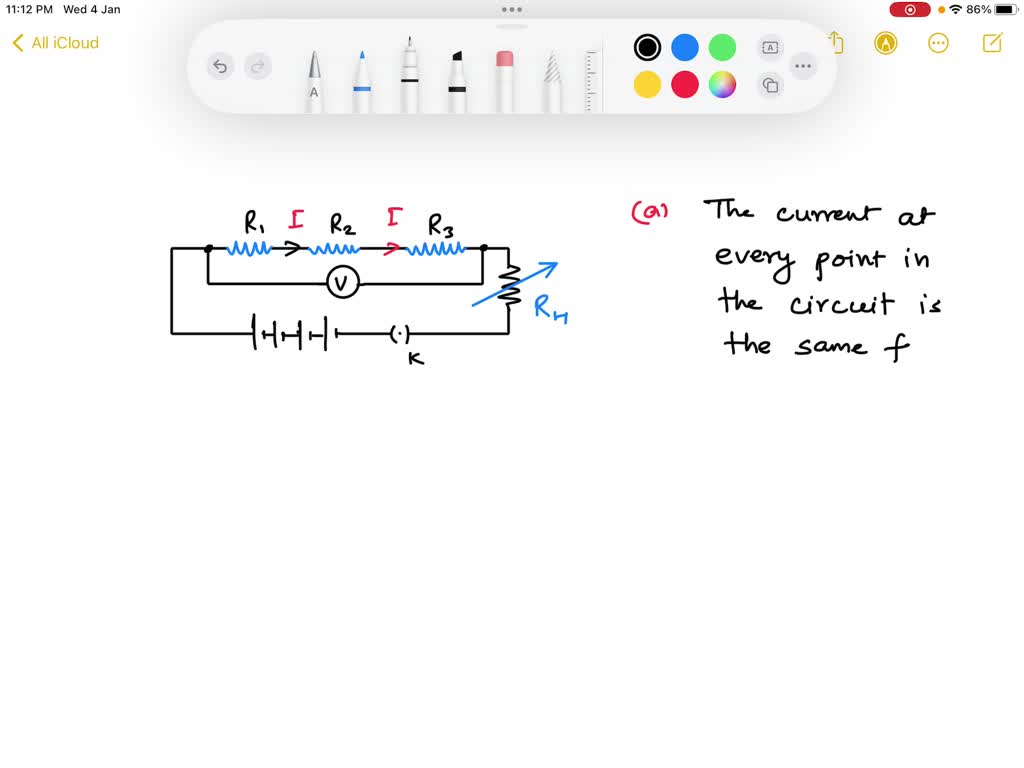 11:12 PM Wed 4 Jan
86%
All iCloud
A
A
A
R1 I R2 I R3
V
RH
K
(a) The current at
every point in
the circuit is
the same f